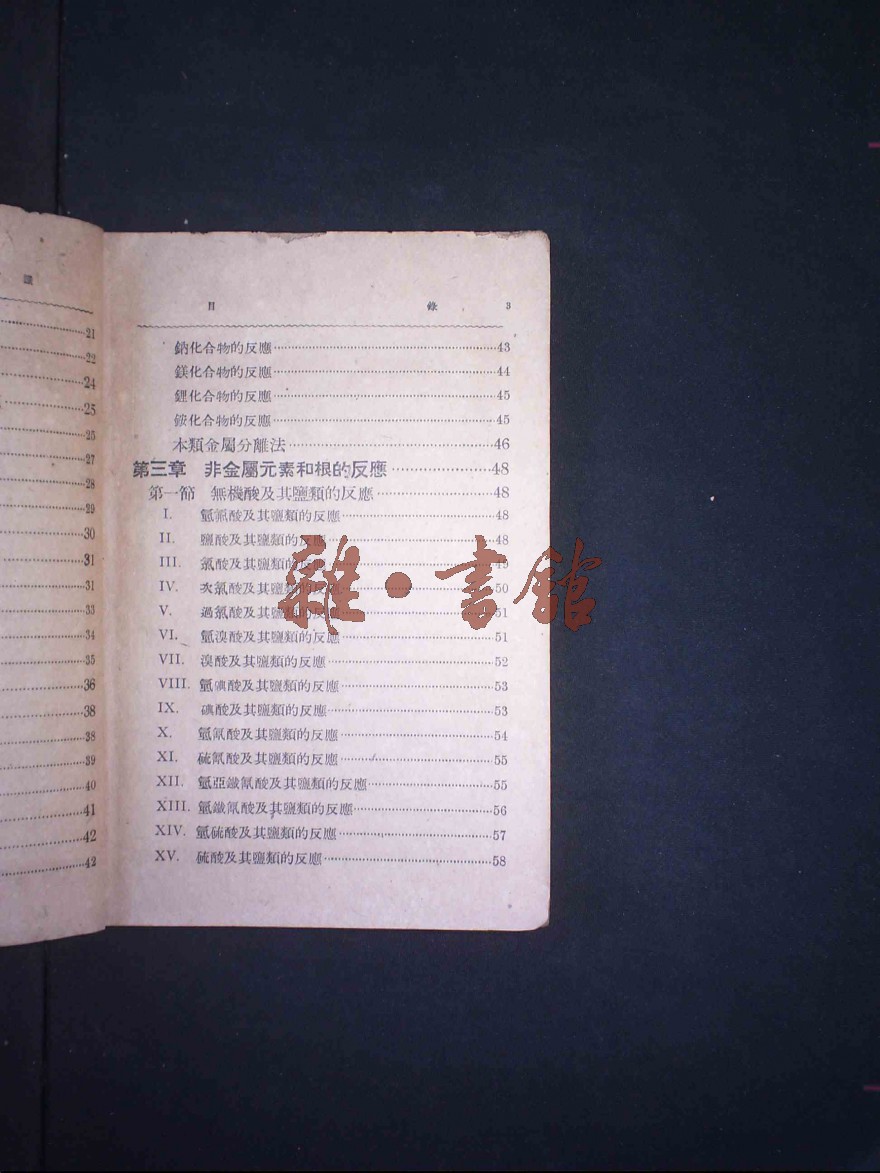 21
22
24
25
25
27
28
29
30
31
31
33
34
35
36
38
38
39
40
41
42
42
目 錄 3
鈉化合物的反應……43
鎂化合物的反應……44
鋰化合物的反應……45
銨化合物的反應……45
本類金屬分離法……46
第三章 非金屬元素和根的反應……48
第一節 無機酸及其鹽類的反應……48
I. 氫氟酸及其鹽類的反應……48
II. 鹽酸及其鹽類的反應……48
III. 氯酸及其鹽類的反應……49
IV. 次氯酸及其鹽類的反應……50
V. 過氯酸及其鹽類的反應……51
VI. 氫溴酸及其鹽類的反應……51
VII. 溴酸及其鹽類的反應……52
VIII. 氫碘酸及其鹽類的反應……53
IX. 碘酸及其鹽類的反應……53
X. 氫氰酸及其鹽類的反應……54
XI. 硫氰酸及其鹽類的反應……55
XII. 氫亞鐵氰酸及其鹽類的反應……55
XIII. 氫鐵氰酸及其鹽類的反應……56
XIV. 氫硫酸及其鹽類的反應……57
XV. 硫酸及其鹽類的反應……58
雜·書館